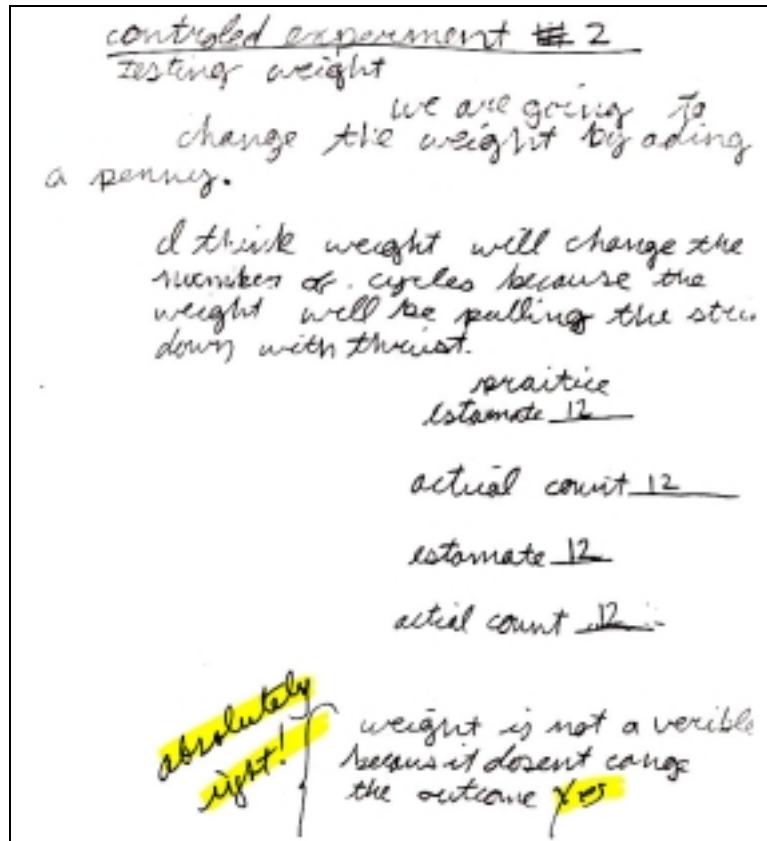 controled experment # 2
Testing weight
we are going to
change the weight by ading
a penny.
I think weight will change the
number of cycles because the
weight will be pulling the
down with thrust.
praitice
estamate 12
actual count 12
estamate 12
actial count 12
absolutely
right!
weight is not a verible
becaus it dosent cange
the outcome Yes